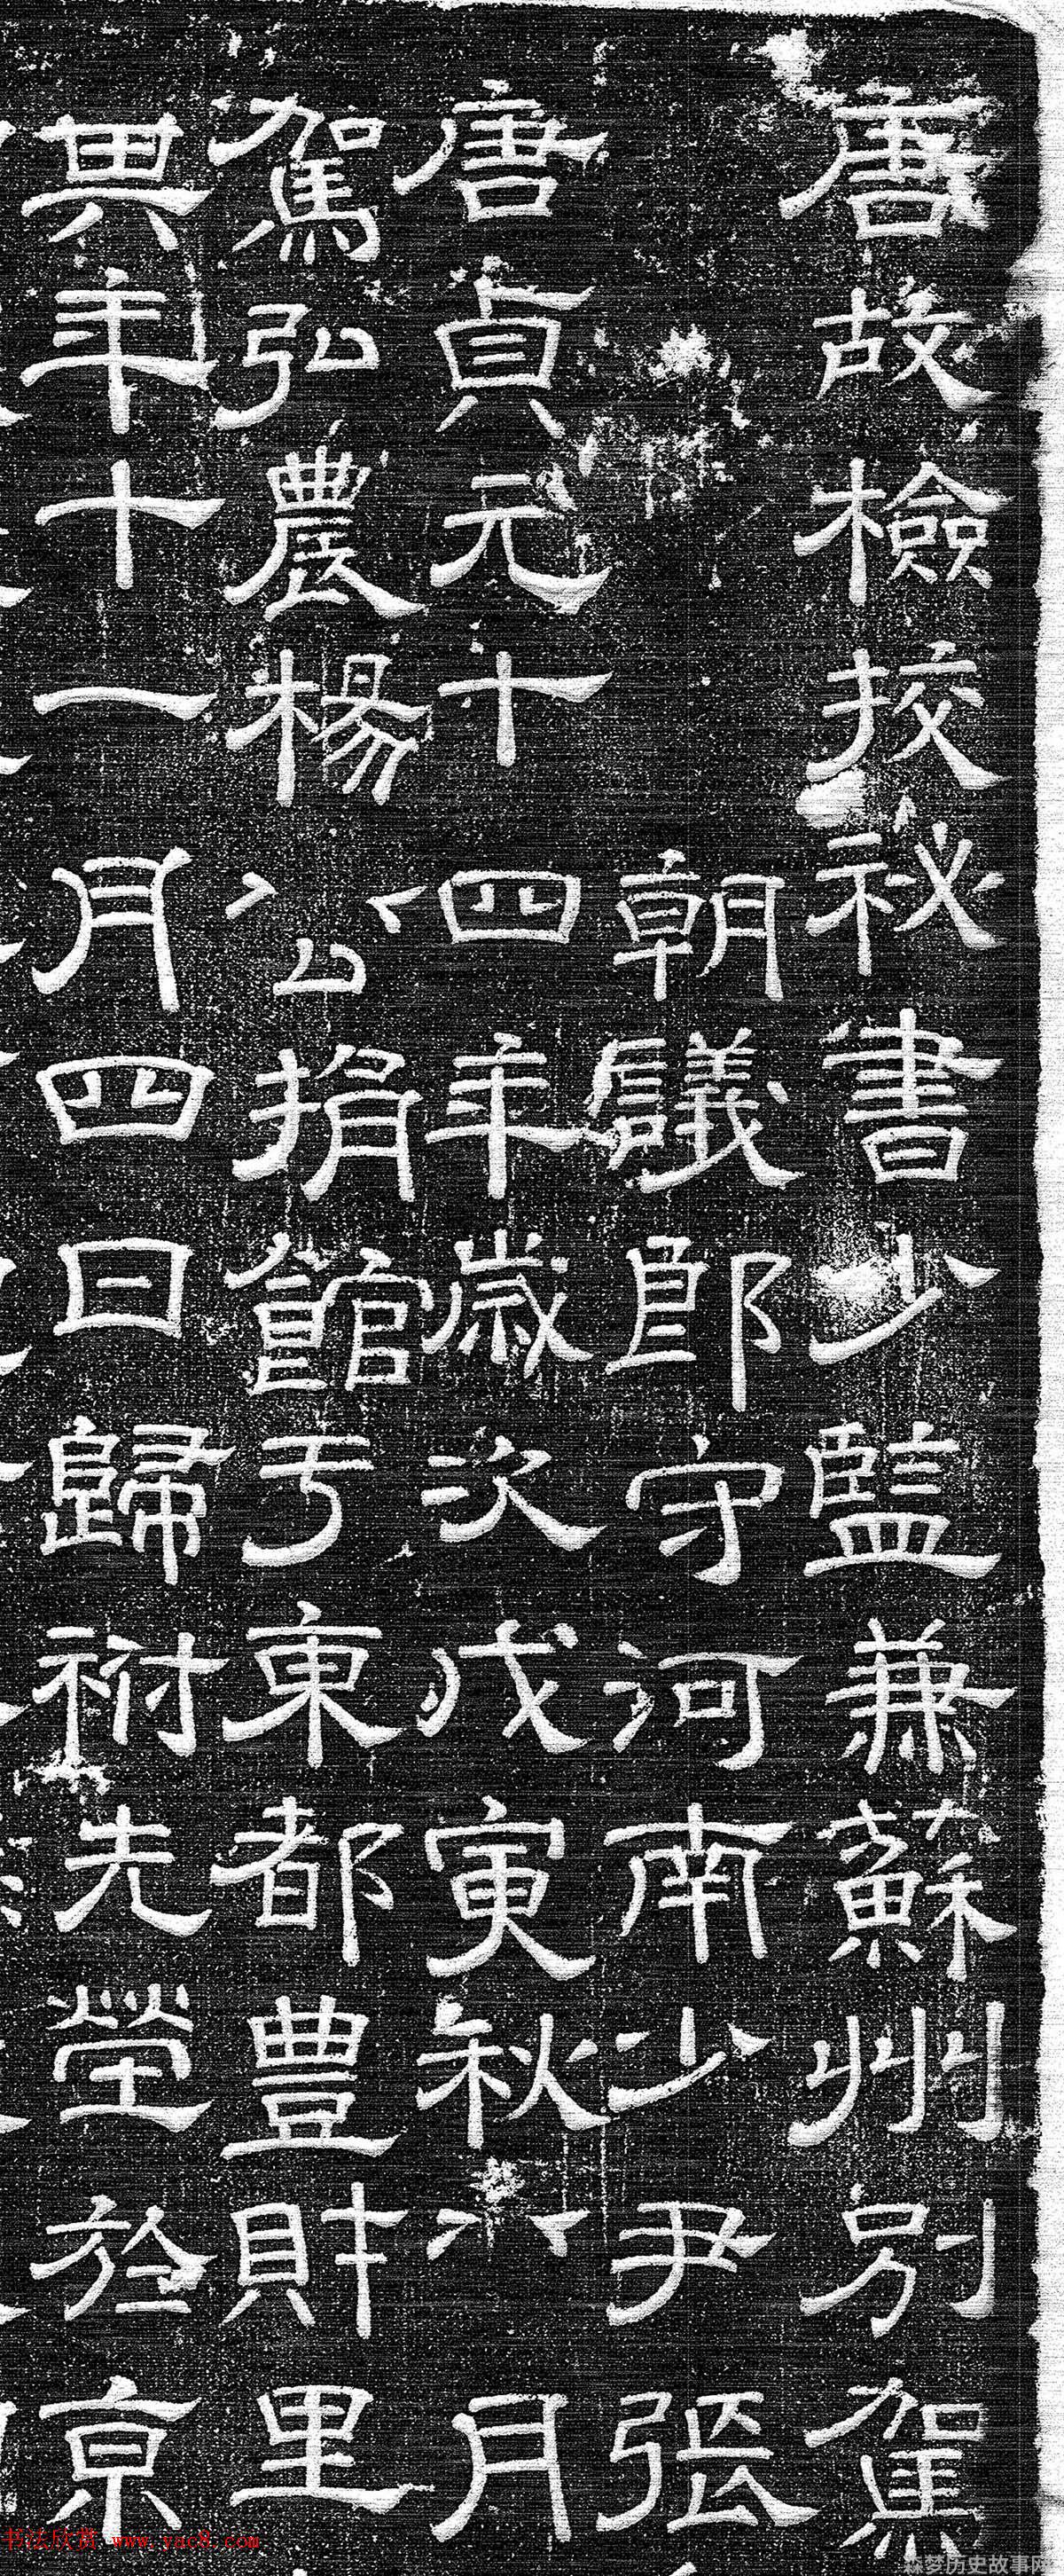 唐故檢挍祕書少監兼蘇州別駕
朝議郎守河南少尹張
唐貞元十四年歲次戊寅秋八月
駕弘農楊公捐館于東都豐財里
其年十一月四日歸祔先塋於京
书法欣赏 www.yac8.com
森梦历史故事网